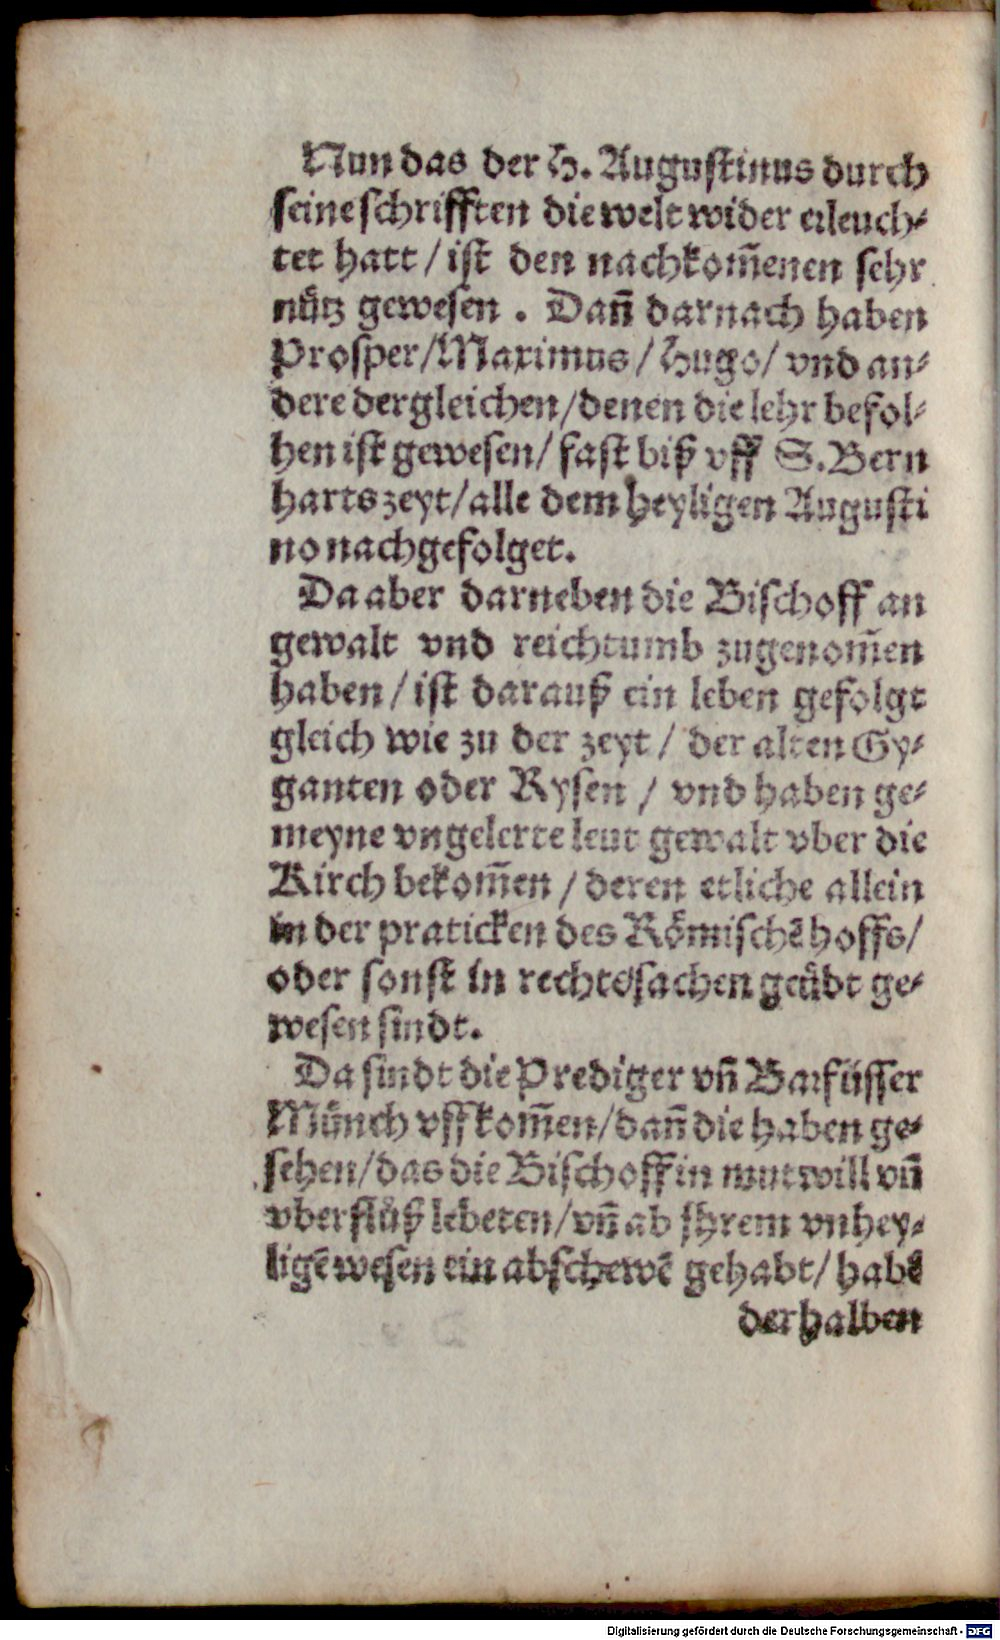 Nun das der H. Augustinus durch
seine schrifften die welt wider erleuch-
tet hatt / ist den nachkom̃enen sehr
nuͤtz gewesen . Dañ darnach haben
Prosper/Maximus / Hugo/ vnd an-
dere dergleichen/denen die lehr befol-
hen ist gewesen/ fast biß vff S. Bern
harts zeyt/alle dem heyligen Augusti
no nachgefolget.
Da aber darneben die Bischoff an
gewalt vnd reichtumb zugenom̃en
haben / ist darauß ein leben gefolgt
gleich wie zu der zeyt / der alten Gy-
ganten oder Rysen / vnd haben ge-
meyne vngelerte leut gewalt vber die
Kirch bekom̃en / deren etliche allein
in der praticken des Roͤmischē hoffs/
oder sonst in rechtssachen geuͤbt ge-
wesen sindt.
Da sindt die Prediger vñ Barfuͤsser
Muͤnch vffkom̃en/dañ die haben ge-
sehen/das die Bischoff in mutwill vñ
vberfluͤß lebeten/vñ ab jhrem vnhey-
ligē wesen ein abschewē gehabt/ habē
derhalben
Digitalisierung gefördert durch die Deutsche Forschungsgemeinschaft - DFG